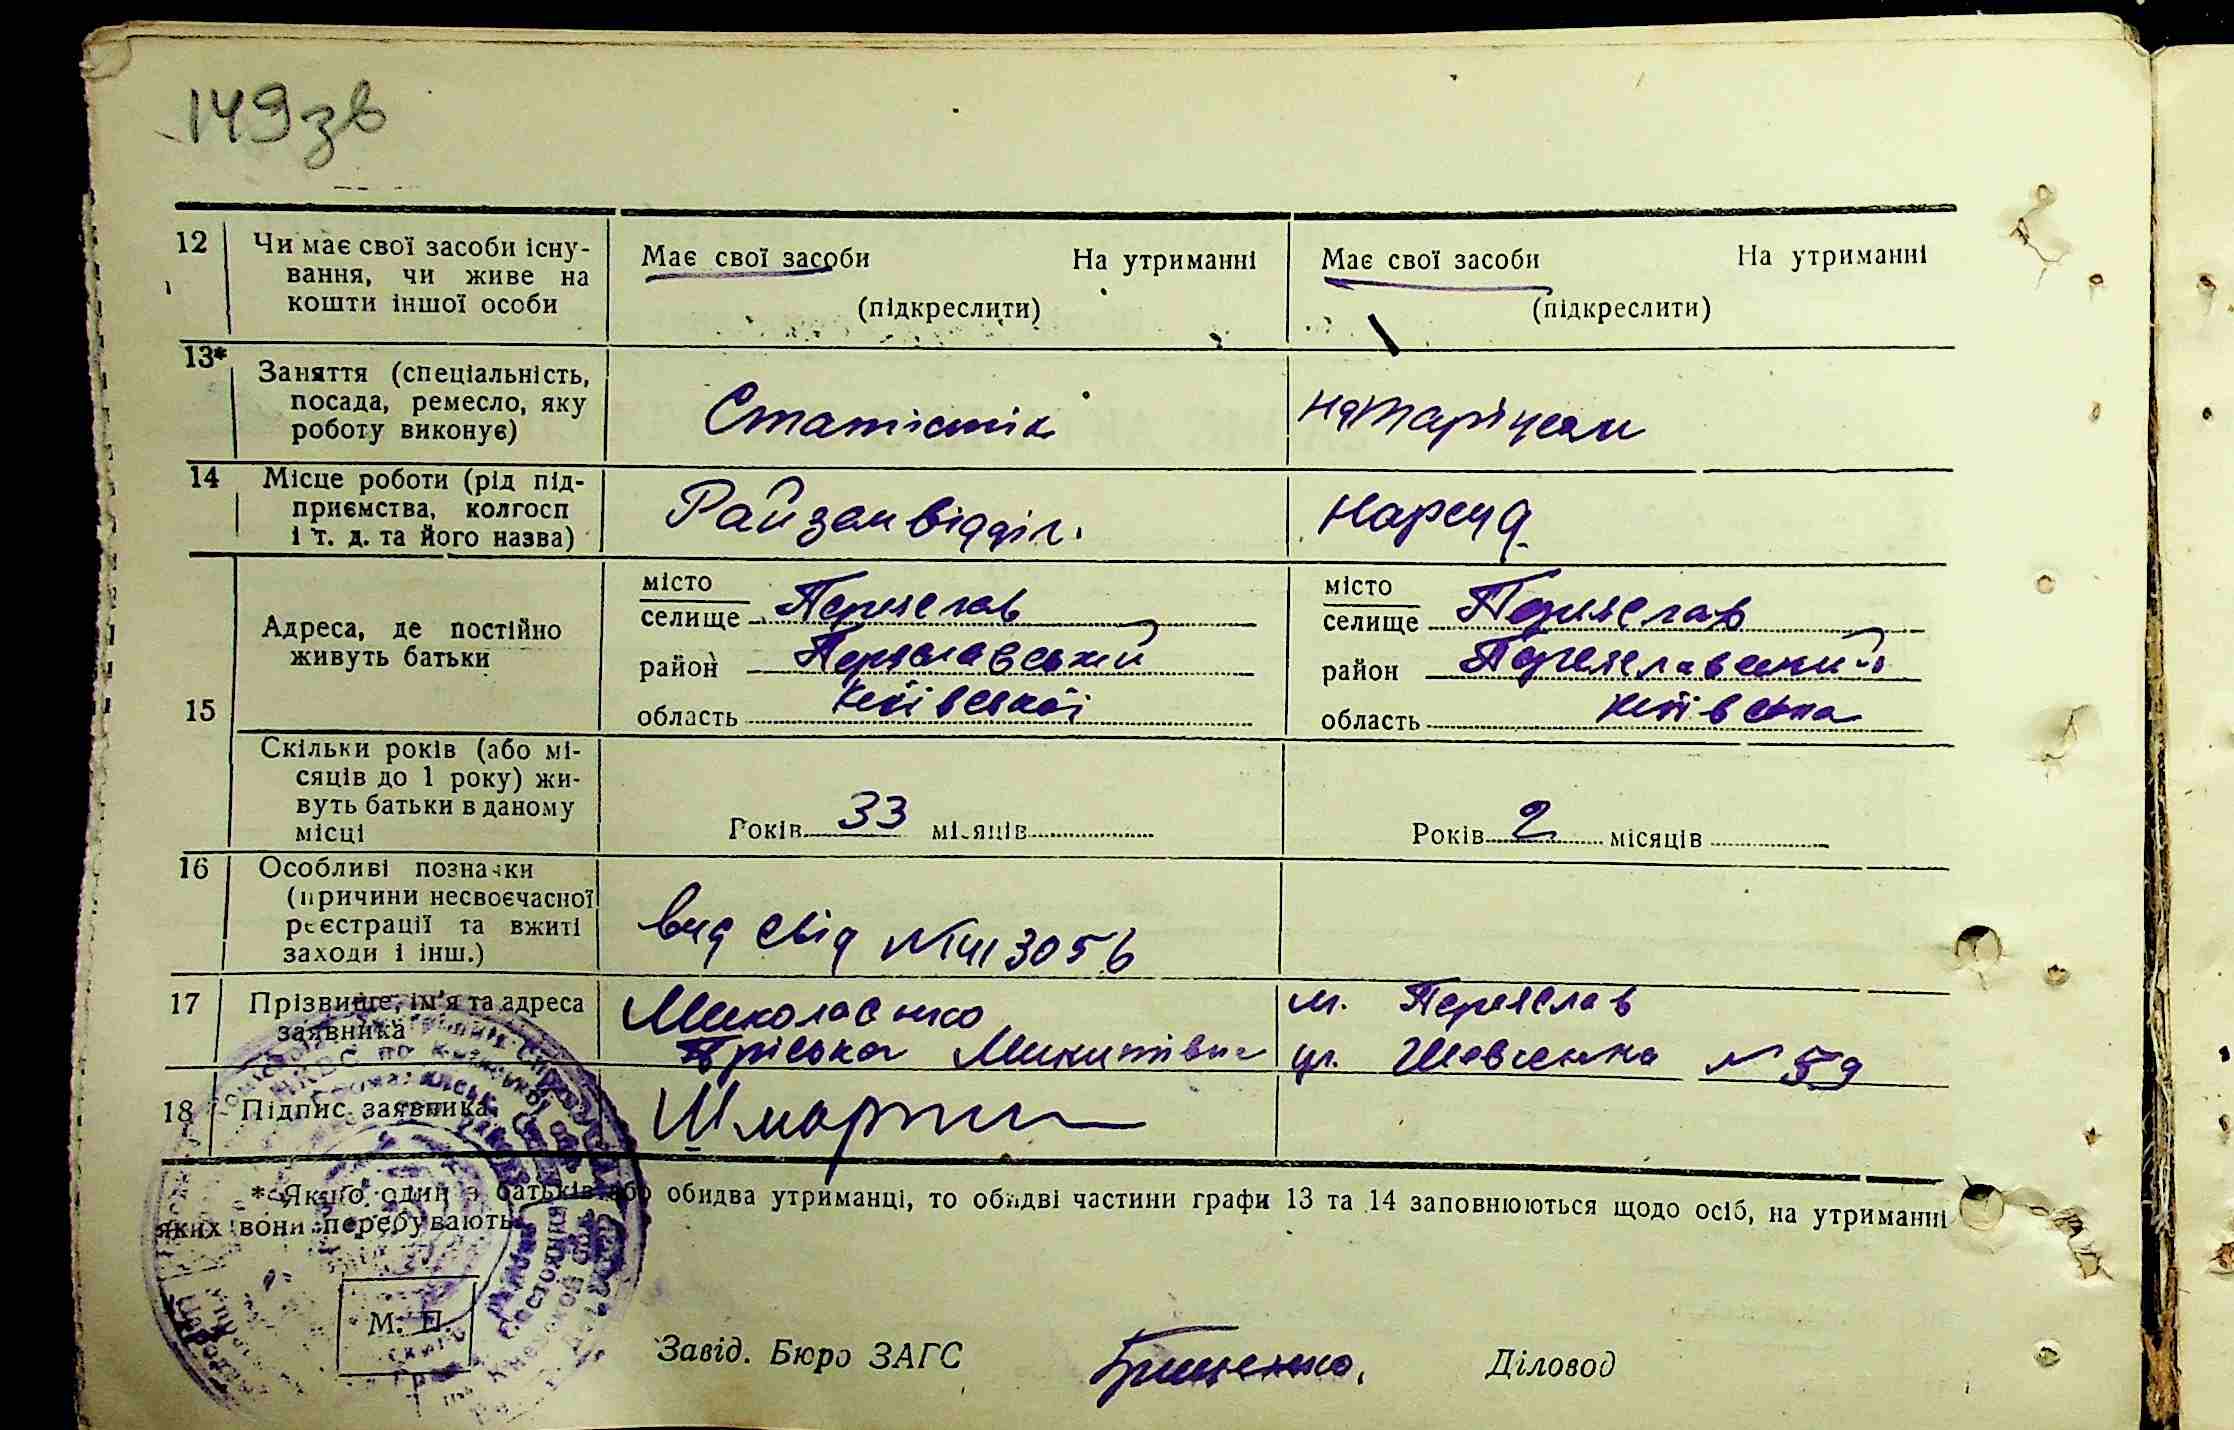 149зв
12 Чи має свої засоби існу-
вання, чи живе на
кошти іншої особи
Має свої засоби На утриманні
(підкреслити)
Має свої засоби На утриманні
(підкреслити)
13* Заняття (спеціальність,
посада, ремесло, яку
роботу виконує)
Статістік
14 Місце роботи (рід під-
приємства, колгосп
і т. д. та його назва)
Райземвідділ.
Нарсуд
15 Адреса, де постійно
живуть батьки
місто
селище Переяслав
район Переяславський
область Київської
місто
селище Переяслав
район Переяславський
область Київська
Скільки років (або мі-
сяців до 1 року) жи-
вуть батьки в даному
місці
Років 33 місяців
Років 2 місяців
16 Особливі позначки
(причини несвоєчасної
реєстрації та вжиті
заходи і інш.)
вид свід №
17 Прізвище, ім'я та адреса
заявника
Миколаєнко
Пріська Микитівна
м. Переяслав
ул. Шевченка № 59
18 Підпис заявника
* Якщо один з батьків або обидва утриманці, то обидві частини графи 13 та 14 заповнюються щодо осіб, на утриманні
яких вони перебувають
М. П.
Завід. Бюро ЗАГС Грищенко. Діловод